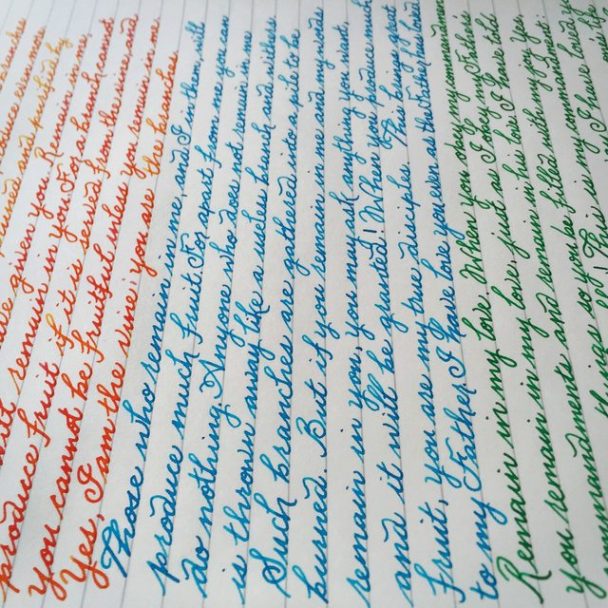 branches
produce even more
pruned and purified by
have given you. Remain in me,
will remain in you. For a branch cannot
produce fruit if it is severed from the vine and
you cannot be fruitful unless you remain in
Yes, I am the vine; you are the branches
Those who remain in me, and I in them, will
produce much fruit. For apart from me you can
do nothing. Anyone who does not remain in me
is thrown away like a useless branch and withers
Such branches are gathered into pile to be
burned. But if you remain in me and my words
remain in you, you may ask anything you want,
and it will be granted! When you produce much
fruit, you are my true disciples. This brings great
to my Father. I have love you even as the Father has loved
Remain in my love. When you obey my commandments
you remain in my love, just as I obey my Father's
commandments and remain in his love. I have told
things so you be filled with my joy. Yes,
! This is my commandment:
I have loved